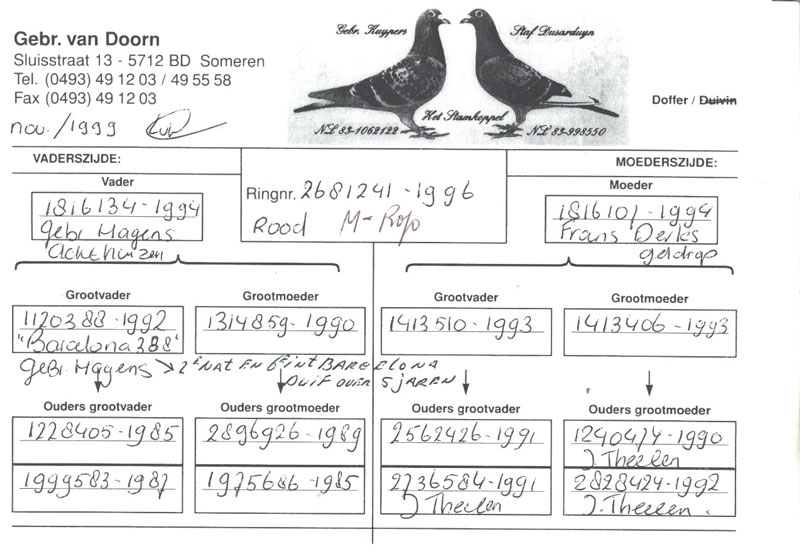 Gebr. van Doorn
Sluisstraat 13 - 5712 BD Someren
Tel. (0493) 49 12 03 / 49 55 58
Fax (0493) 49 12 03
nov. / 1999
Gebr. Kuypers
Staf Dusarduyn
Het Stamkoppel
NL 83-1062122
NL 83-998550
Doffer / Duivin
VADERSZIJDE:
MOEDERSZIJDE:
Vader
1816134-1994
gebr Hagens
Achthuizen
Ringnr. 2681241-1996
Rood M-Rojo
Moeder
1816101-1994
Frans Derks
geldrop
Grootvader
1120388-1992
"Barcelona 388"
gebr Hagens → 2E NAT EN 6E INT BARCELONA
DUIF OVER 5 JAREN
Grootmoeder
1314859-1990
Grootvader
1413510-1993
Grootmoeder
1413406-1993
Ouders grootvader
1228405-1985
1999583-1987
Ouders grootmoeder
2896926-1989
1975686-1985
Ouders grootvader
2562426-1991
2736584-1991
J Theelen
Ouders grootmoeder
1240474-1990
J. Theelen
2828424-1992
J. Theelen.